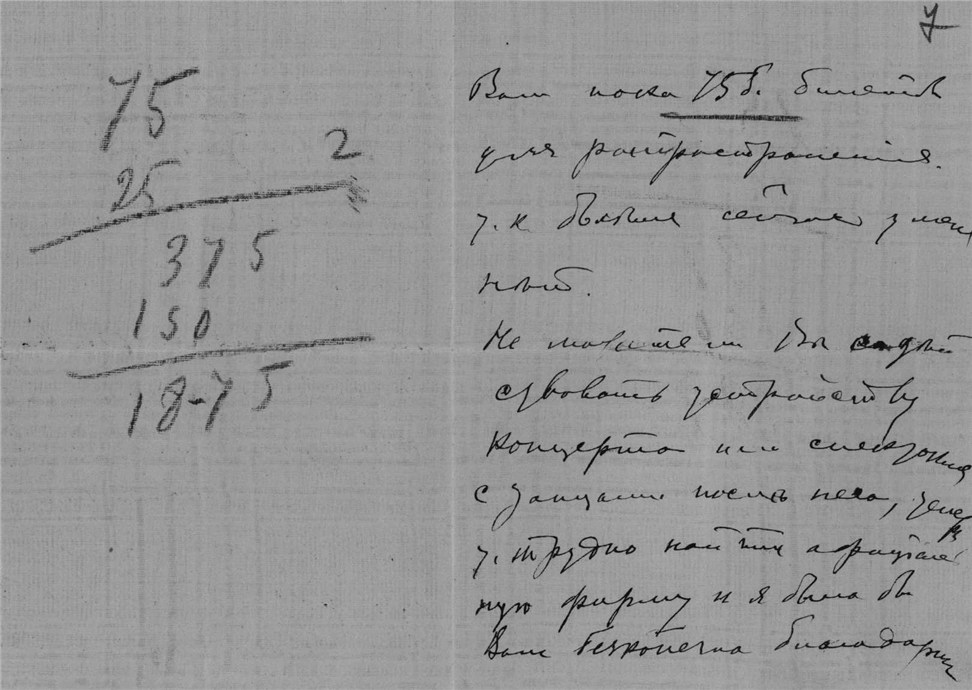 75
25 2
375
150
18-75
7
Вам пока 75 б. билетов
для распространения.
т. к больше сейчас у меня
нет.
Не можете ли Вы содей
ствовать устройству
концерта или спектакля
с танцами после него,
т. трудно найти
ную фирму и я была бы
Вам безконечно благодарна